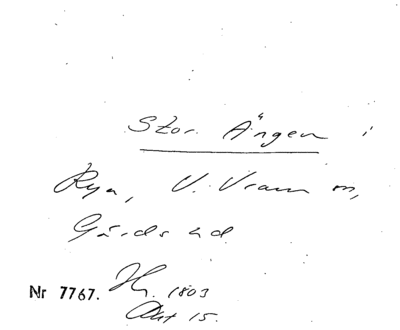 Stor Ängen i
Rya, V. Vram sn,
Gärds hd.
Nr 7767. 1803
Akt 15.